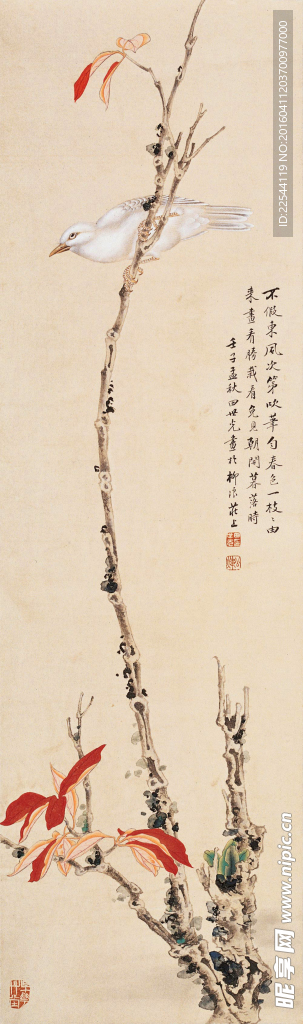 不假東風次第吹筆勻春色一枝々由
來畫看勝栽看免見朝開暮落時
壬子孟秋田世光畫於柳浪莊上
ID:22544119 NO:20160411203700977000
昵享网 www.nipic.cn